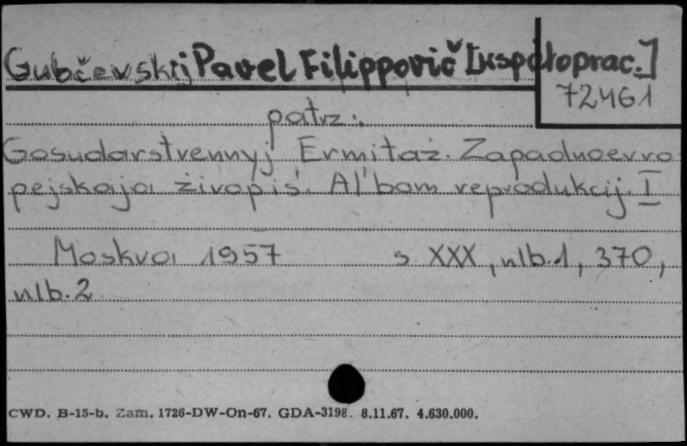 Gubčevskij Pavel Filippovič [współoprac.]
72461
patrz:
Gosudarstvennyj Ermitaż. Zapadnoevro
pejskaja živopiś. Al'bom reprodukcij. I
Moskva 1957 s. XXX, nlb.1, 370,
nlb.2
CWD. B-15-b. Zam. 1726-DW-On-67. GDA-3198. 8.11.67. 4.630.000.